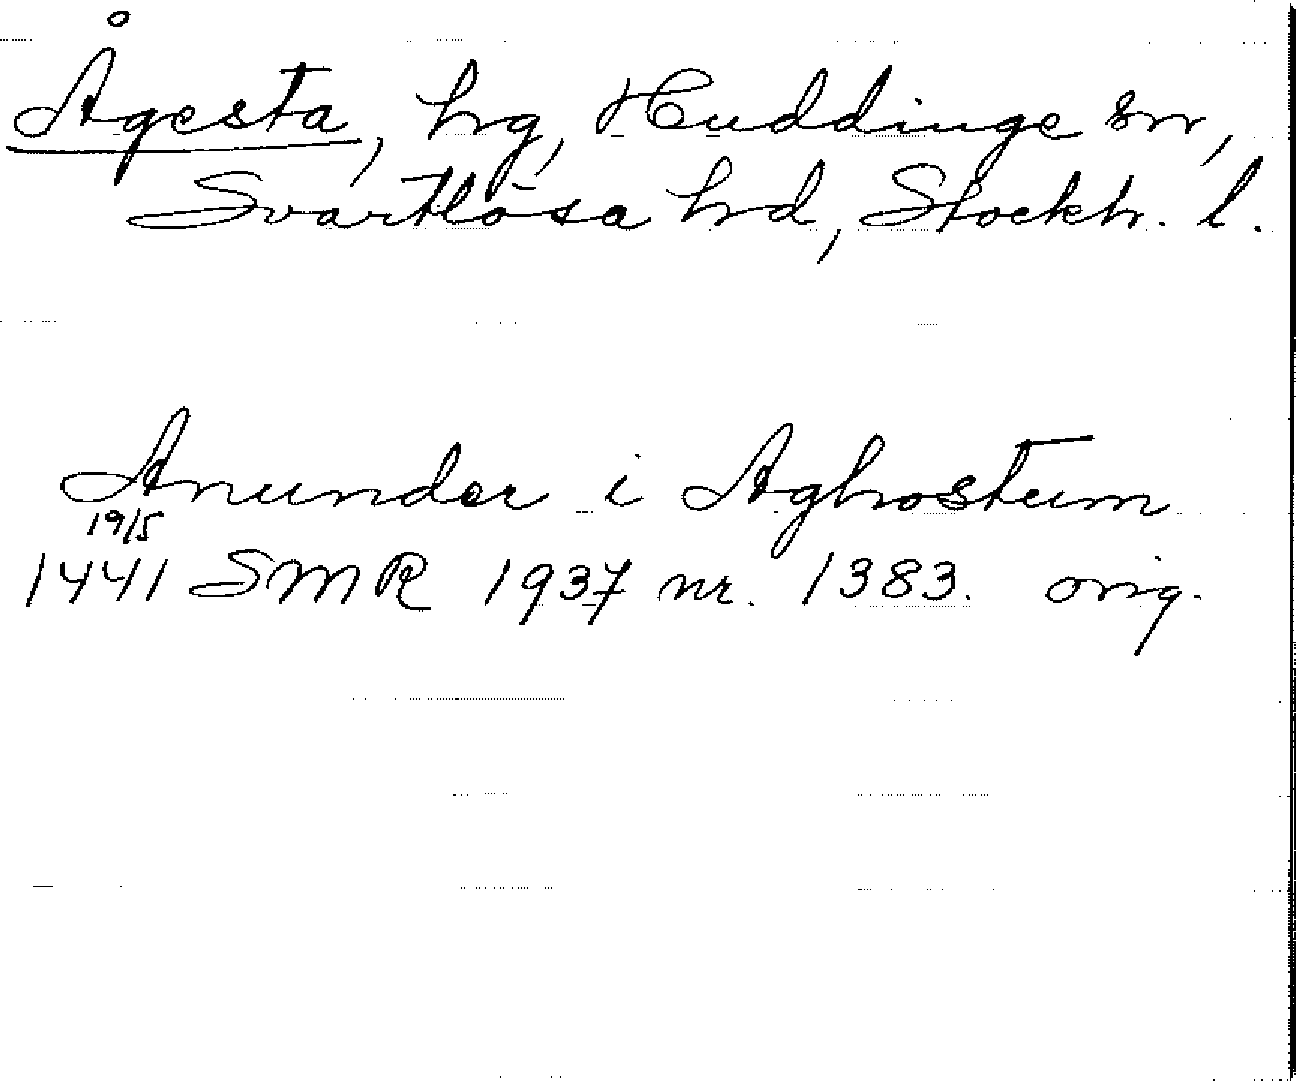 Ågesta, hg, Huddinge sn,
Svartlösa hd, Stockh. l.
Anunder i Aghostum
19/5
1441 SMR 1937 nr. 1383. orig.